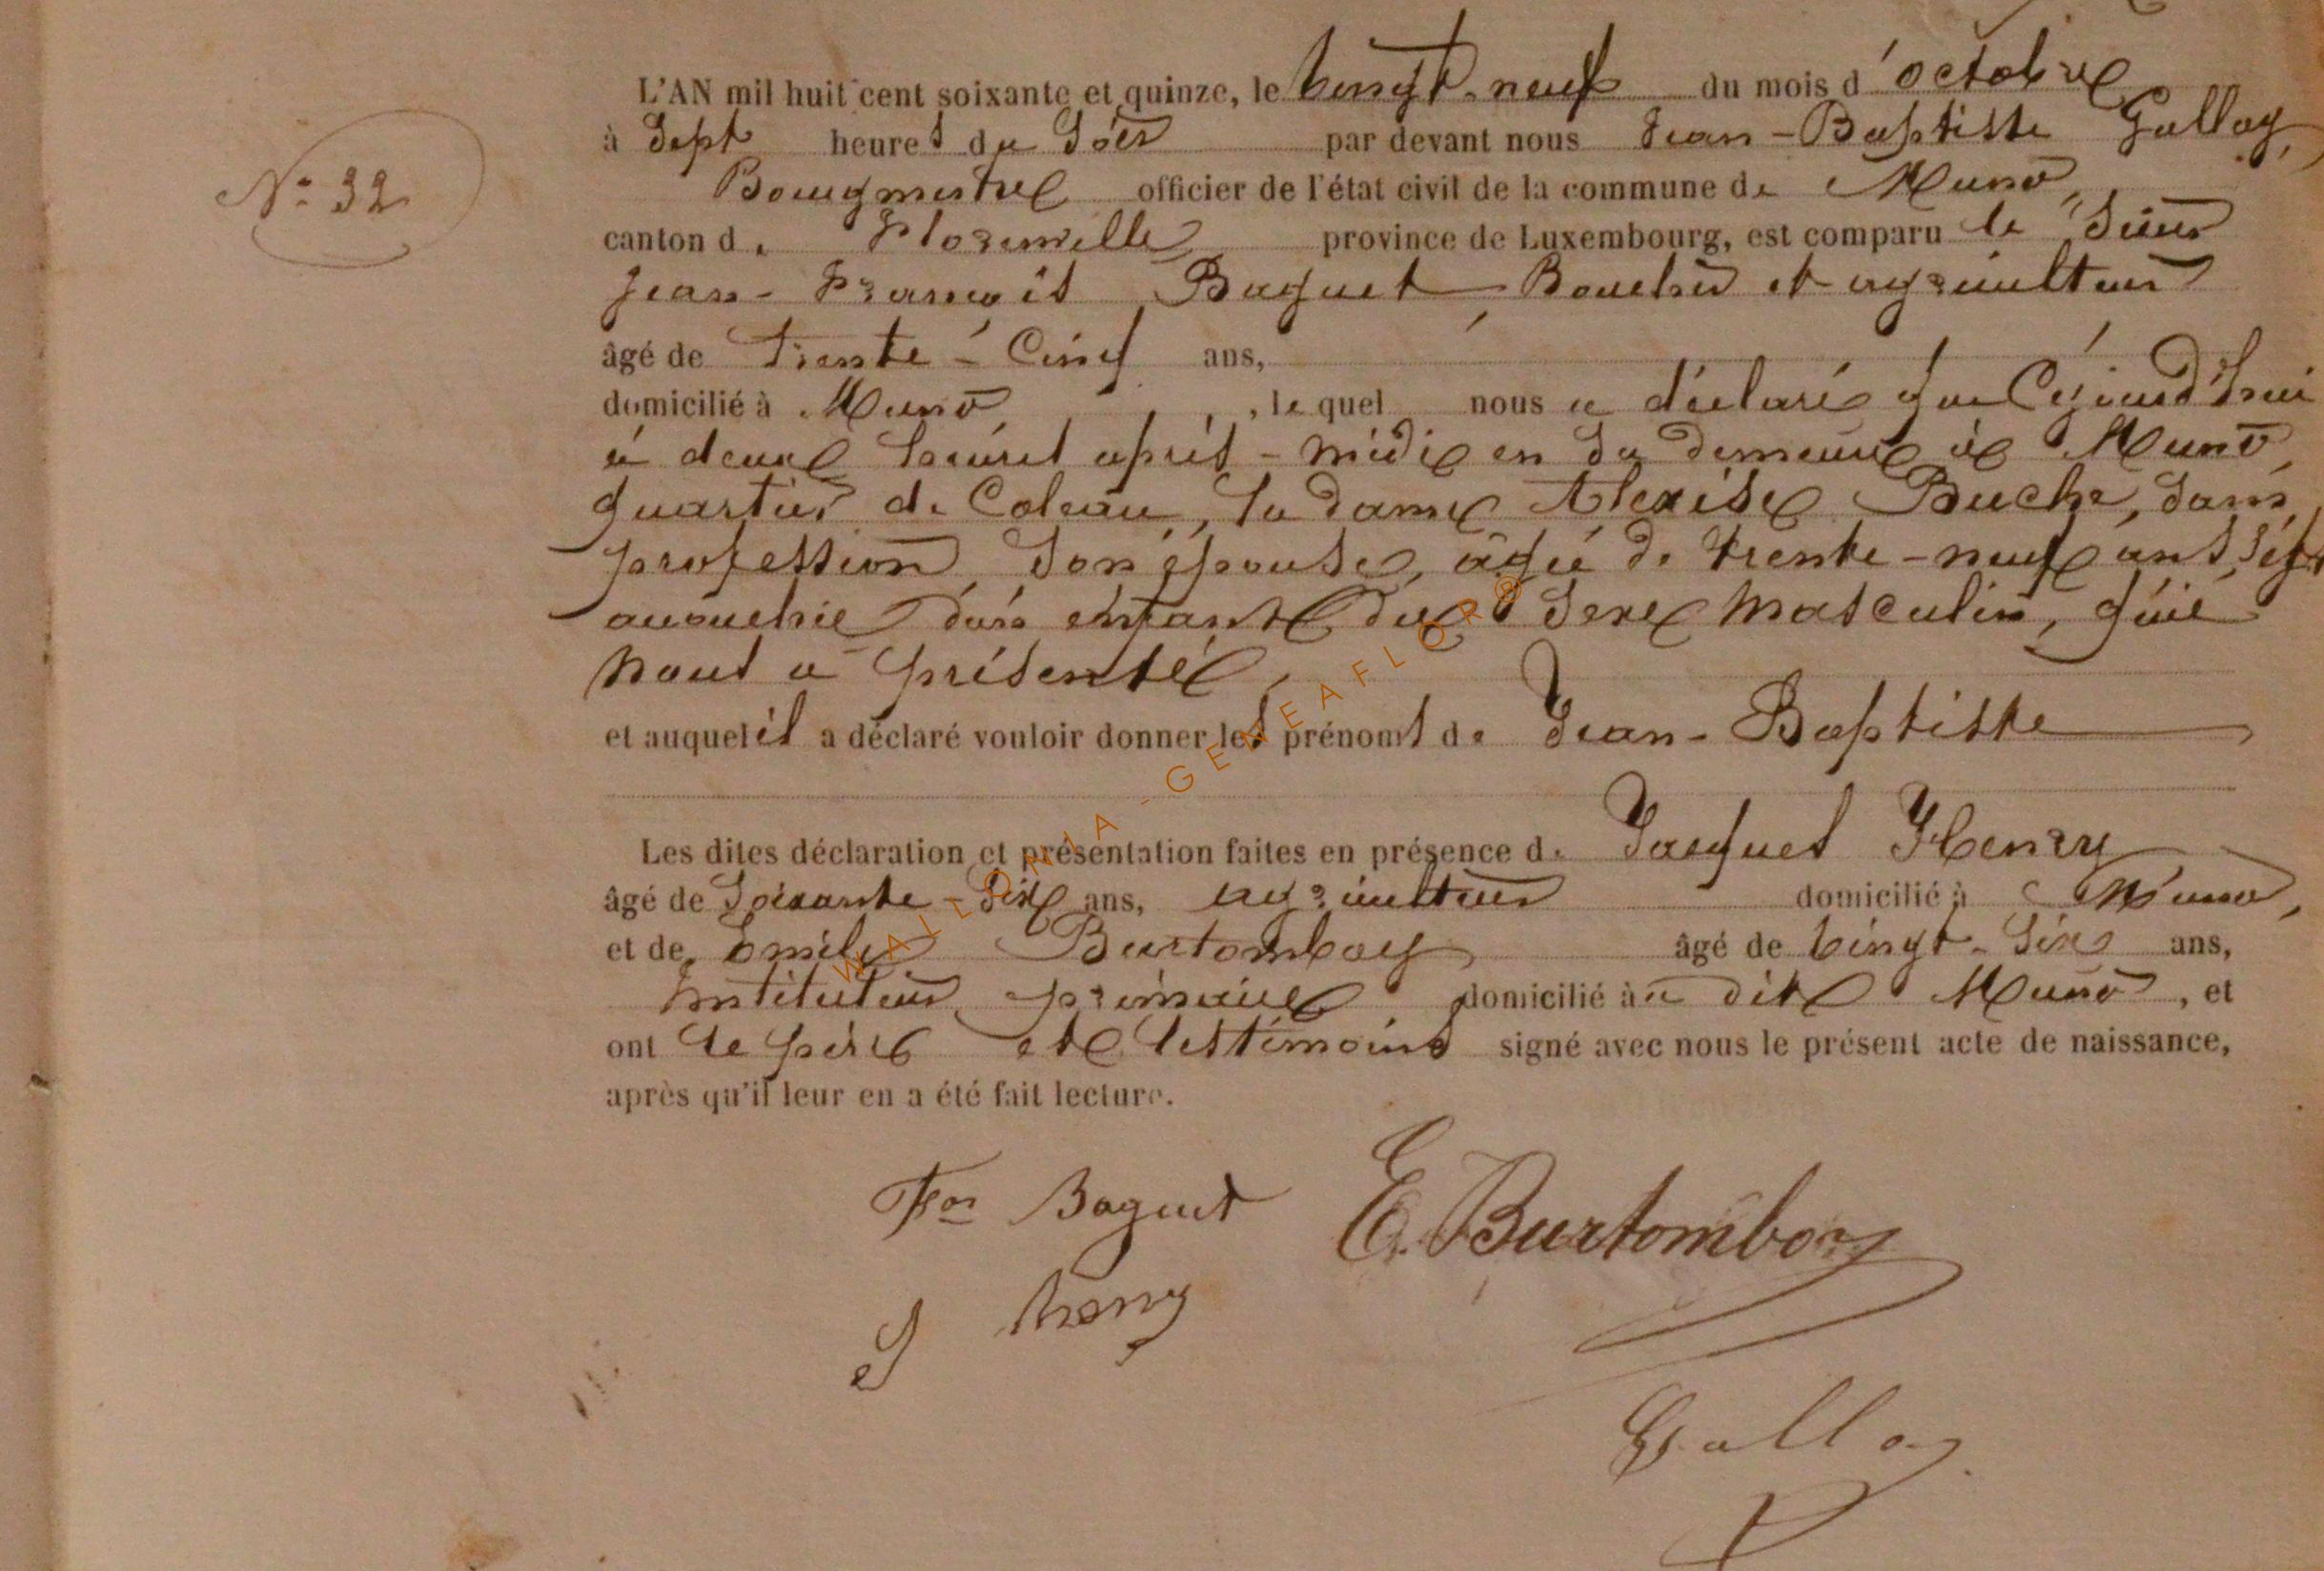 L'AN mil huit cent soixante et quinze, le vingt-neuf du mois d'octobre
à Sept heures du Soir par devant nous Jean-Baptiste Galloy,
N° 32
Bourgmestre officier de l'état civil de la commune de Muno,
canton de Florenville province de Luxembourg, est comparu le Sieur
Jean-François Baquet, Boucher et agriculteur
âgé de Trente-Cinq ans,
domicilié à Muno, lequel nous a déclaré que Cejourd'hui
à deux heures après-midi en Sa demeure à Muno,
quartier de , la dame Alexise Buche, Sans
profession, Son épouse, âgée de trente-neuf ans, est
accouchée d'un enfant du Sexe masculin, qu'il
nous a présenté,
et auquel il a déclaré vouloir donner les prénoms de Jean-Baptiste
Les dites déclaration et présentation faites en présence de Jacques Henry
âgé de Soixante-Six ans, agriculteur domicilié à Muno,
et de Emile Burtomboy âgé de vingt-Six ans,
Instituteur primaire domicilié à dit Muno, et
ont le père et les témoins signé avec nous le présent acte de naissance,
après qu'il leur en a été fait lecture.
WALLONIA-GENEAFLORB
Fçois Baquet E. Burtomboy
J henry
Galloy